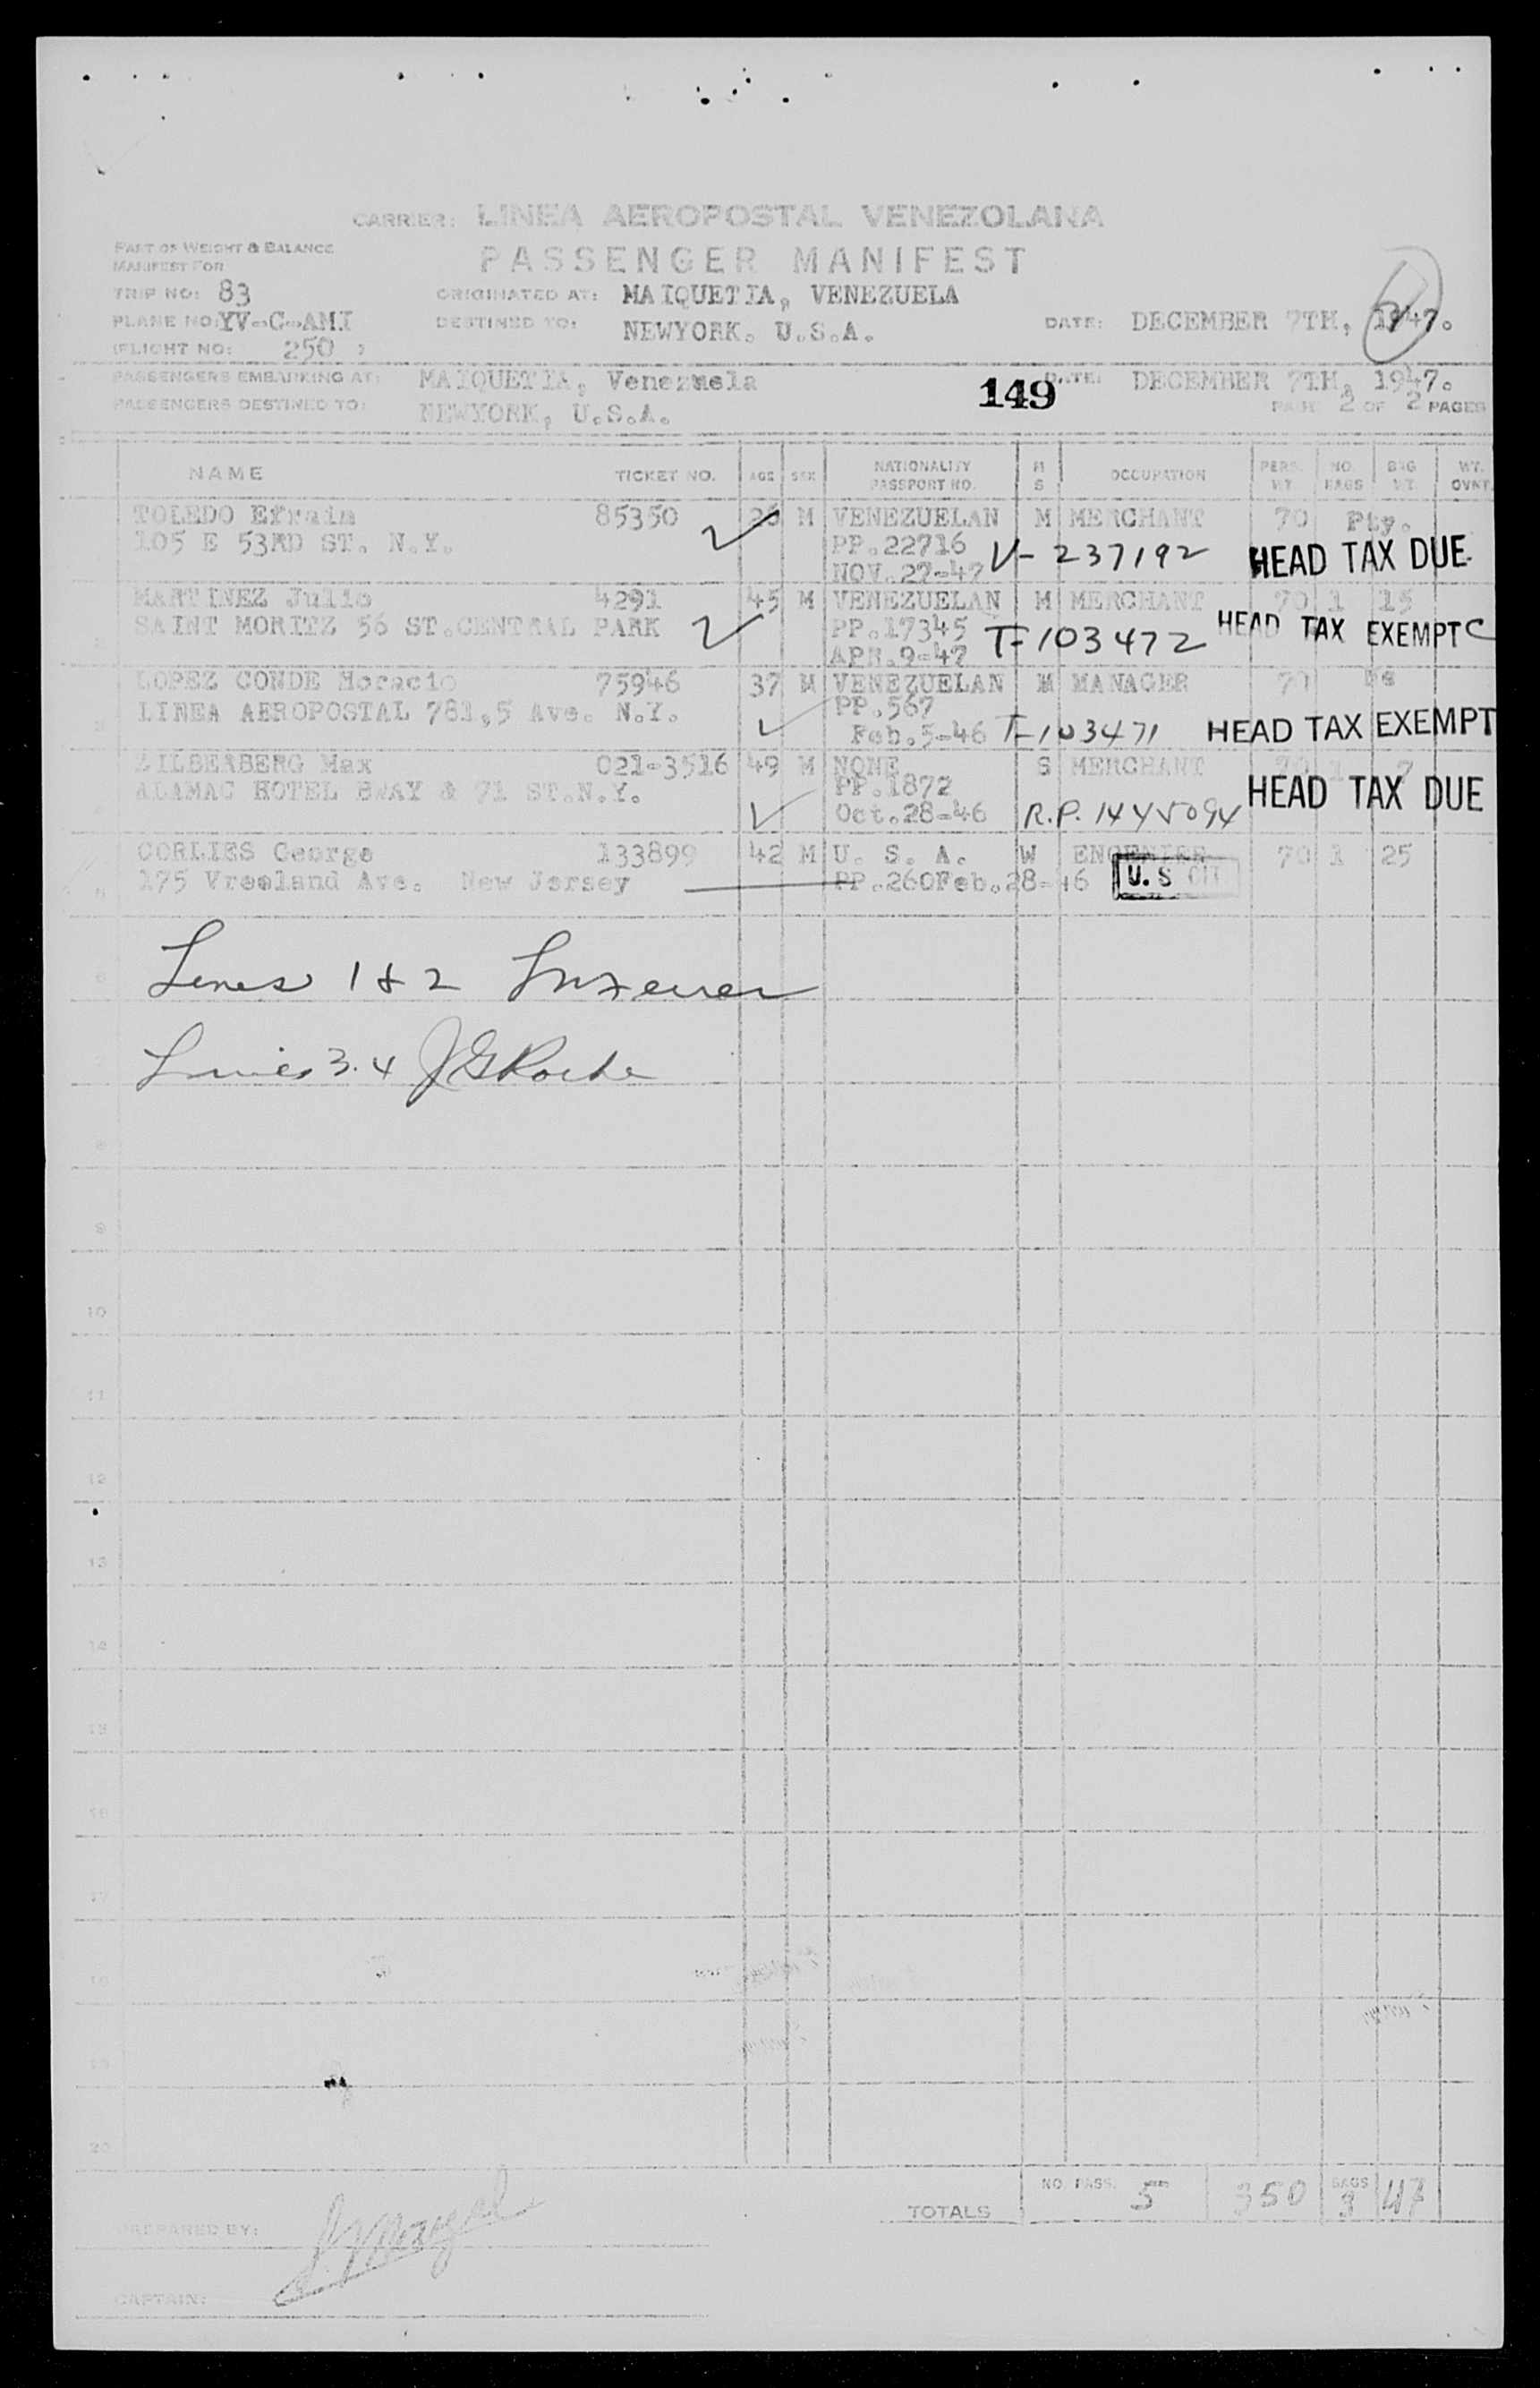 CARRIER: LINEA AEROPOSTAL VENEZOLANA
PART OF WEIGHT & BALANCE
MANIFEST FOR
PASSENGER MANIFEST
TRIP NO: 83
ORIGINATED AT: MAIQUETIA, VENEZUELA
PLANE NO: YV-C-AMI
DESTINED TO: NEWYORK. U.S.A.
DATE: DECEMBER 7TH, 1947.
(FLIGHT NO: 250 )
PASSENGERS EMBARKING AT: MAIQUETIA, Venezuela
149
DATE: DECEMBER 7TH, 1947.
PASSENGERS DESTINED TO: NEWYORK, U.S.A.
PAGE 2 OF 2 PAGES
NAME TICKET NO. AGE SEX NATIONALITY PASSPORT NO. M S OCCUPATION PERS. WT. NO. BAGS BAG WT. WT. OVNT.
TOLEDO Efrain 85350 26 M VENEZUELAN M MERCHANT 70 Pty.
105 E 53RD ST. N.Y. PP.22716 V-237192 HEAD TAX DUE
NOV.27-47
MARTINEZ Julio 4291 45 M VENEZUELAN M MERCHANT 70 1 15
SAINT MORITZ 56 ST.CENTRAL PARK PP.17345 T-103472 HEAD TAX EXEMPT C
APR.9-47
LOPEZ CONDE Horacio 75946 37 M VENEZUELAN M MANAGER 70
LINEA AEROPOSTAL 781,5 Ave. N.Y. PP.567
Feb.5-46 T-103471 HEAD TAX EXEMPT
ZILBERBERG Max 021-3516 49 M NONE S MERCHANT 70 1 7
ALAMAC HOTEL BWAY & 71 ST.N.Y. PP.1872 HEAD TAX DUE
Oct.28-46 R.P. 1445094
CORLIES George 133899 42 M U. S. A. W ENGENIER 70 1 25
175 Vreeland Ave. New Jersey PP.260Feb.28-46 U.S CIT.
6
Lines 1 & 2
Lines 3.4 JG Roche
8
9
10
11
12
13
14
15
16
17
18
19
20
TOTALS NO. PASS. 5 350 BAGS 3 47
PREPARED BY:
CAPTAIN: